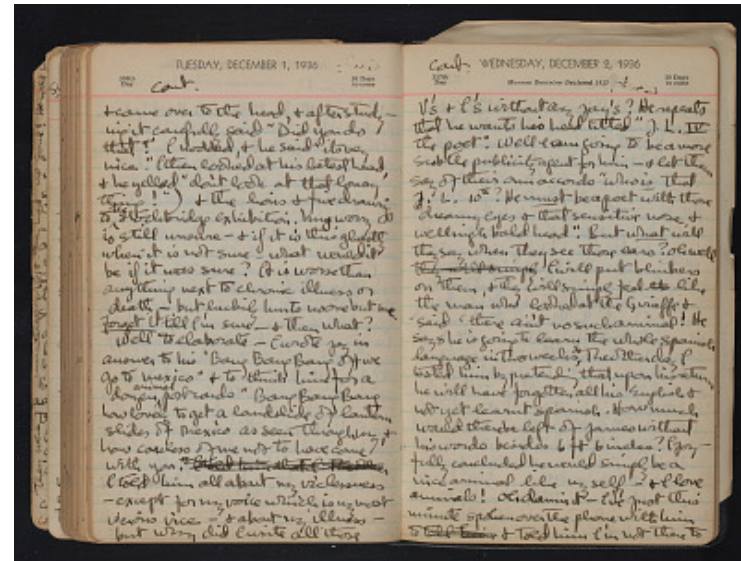 TUESDAY, DECEMBER 1, 1936
cont.
+ came over to the head, + after study-
ing it carefully said "Did you do
that?" I nodded, + he said "it's very
nice." (I then looked at his latest head,
+ he yelled "don't look at that lousy
thing!") + the lions + five drawings
to Stockbridge exhibition. My worry
is still unsure — + if it is this ghastly
when it is not sure — what would it
be if it was sure? It is worse than
anything next to chronic illness or
death — but luckily him to move but me
forget it till I'm sure — + then what?
Well to elaborate — I wrote Jay in
answer to his "Bang Bang Bang off we
go to Mexico" + to thank him for a
dozen animal postcards "Bang Bang Bang
how lovely to get a landslide of lantern
slides of Mexico as seen through you +
how careless of me not to have come
with you."
I told him all about my viclessness
— except for my voice which is my most
vicious vice — + about my illness —
but why did I write all those
Cont. WEDNESDAY, DECEMBER 2, 1936
V's + I's without any Jay's? He repeats
that he wants his head titled "J. L. IV
the poet". Well I am going to be a more
subtle publicity agent for him — + let them
say of their own accords "who is that
J. L. 10th? He must be a poet with those
dreamy eyes + that sensitive nose +
wellnigh bald head". But what will
they say when they see those ears? Oh well
I will put blinkers
on them, + they will simply feel like
the man who looked at the Giraffe +
said "there ain't no such animal"! He
says he is going to learn the whole Spanish
language in two weeks. Then I
told him that upon his return
he will have forgotten all his English +
not yet learnt Spanish. How much
would then be left of James without
his words besides 6 ft + ? I joy-
fully concluded he would simply be a
nice animal like myself — + I love
animals! Oh damn it — I've just this
minute spoken over the phone with him
+ told him I'm not there to